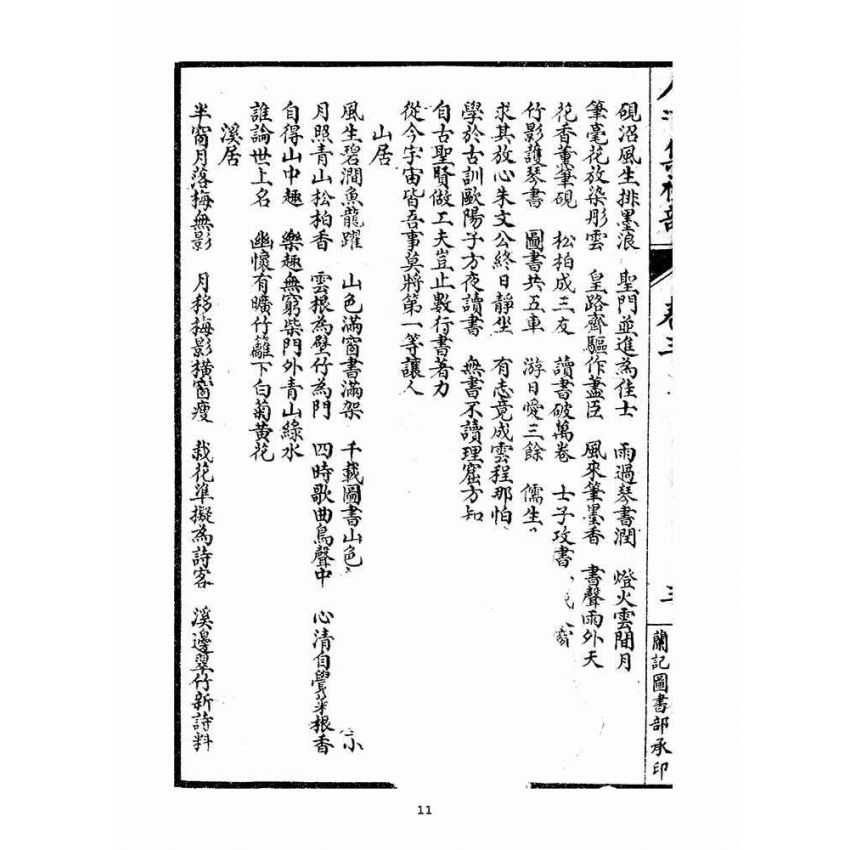 卷三
三
蘭記圖書部承印
硯沼風生排墨浪 聖門並進為佳士 雨過琴書潤 燈火雲間月
筆毫花放染彤雲 皇路齊驅作藎臣 風來筆墨香 書聲雨外天
花香薰筆硯 松柏成三友 讀書破萬卷 士子攻書
竹影護琴書 圖書共五車 游日愛三餘 儒生
求其放心朱文公終日靜坐 有志竟成雲程那怕
學於古訓歐陽子方夜讀書 無書不讀理窟方知
自古聖賢做工夫豈止數行書着力
從今宇宙皆吾事莫將第一等讓人
山居
風生碧澗魚龍躍 山色滿窗書滿架 千載圖書山色 小
月照青山松柏香 雲根為壁竹為門 四時歌曲鳥聲中 心清自覺菜根香
自得山中趣 樂趣無窮柴門外青山綠水
誰論世上名 幽懷有曠竹籬下白菊黃花
溪居
半窗月落梅無影 月移梅影橫窗瘦 栽花準擬為詩客 溪邊翠竹新詩料
11